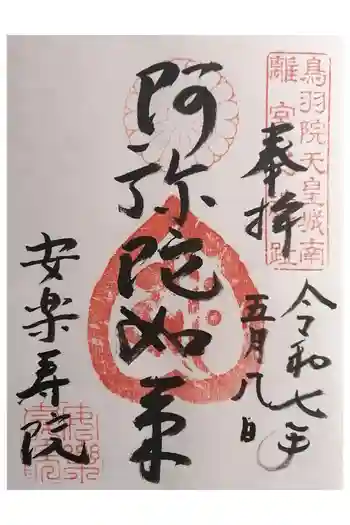 鳥羽院天皇城南
離宮
奉拝
令和七年
五月八日
阿弥陀如来
安楽寿院